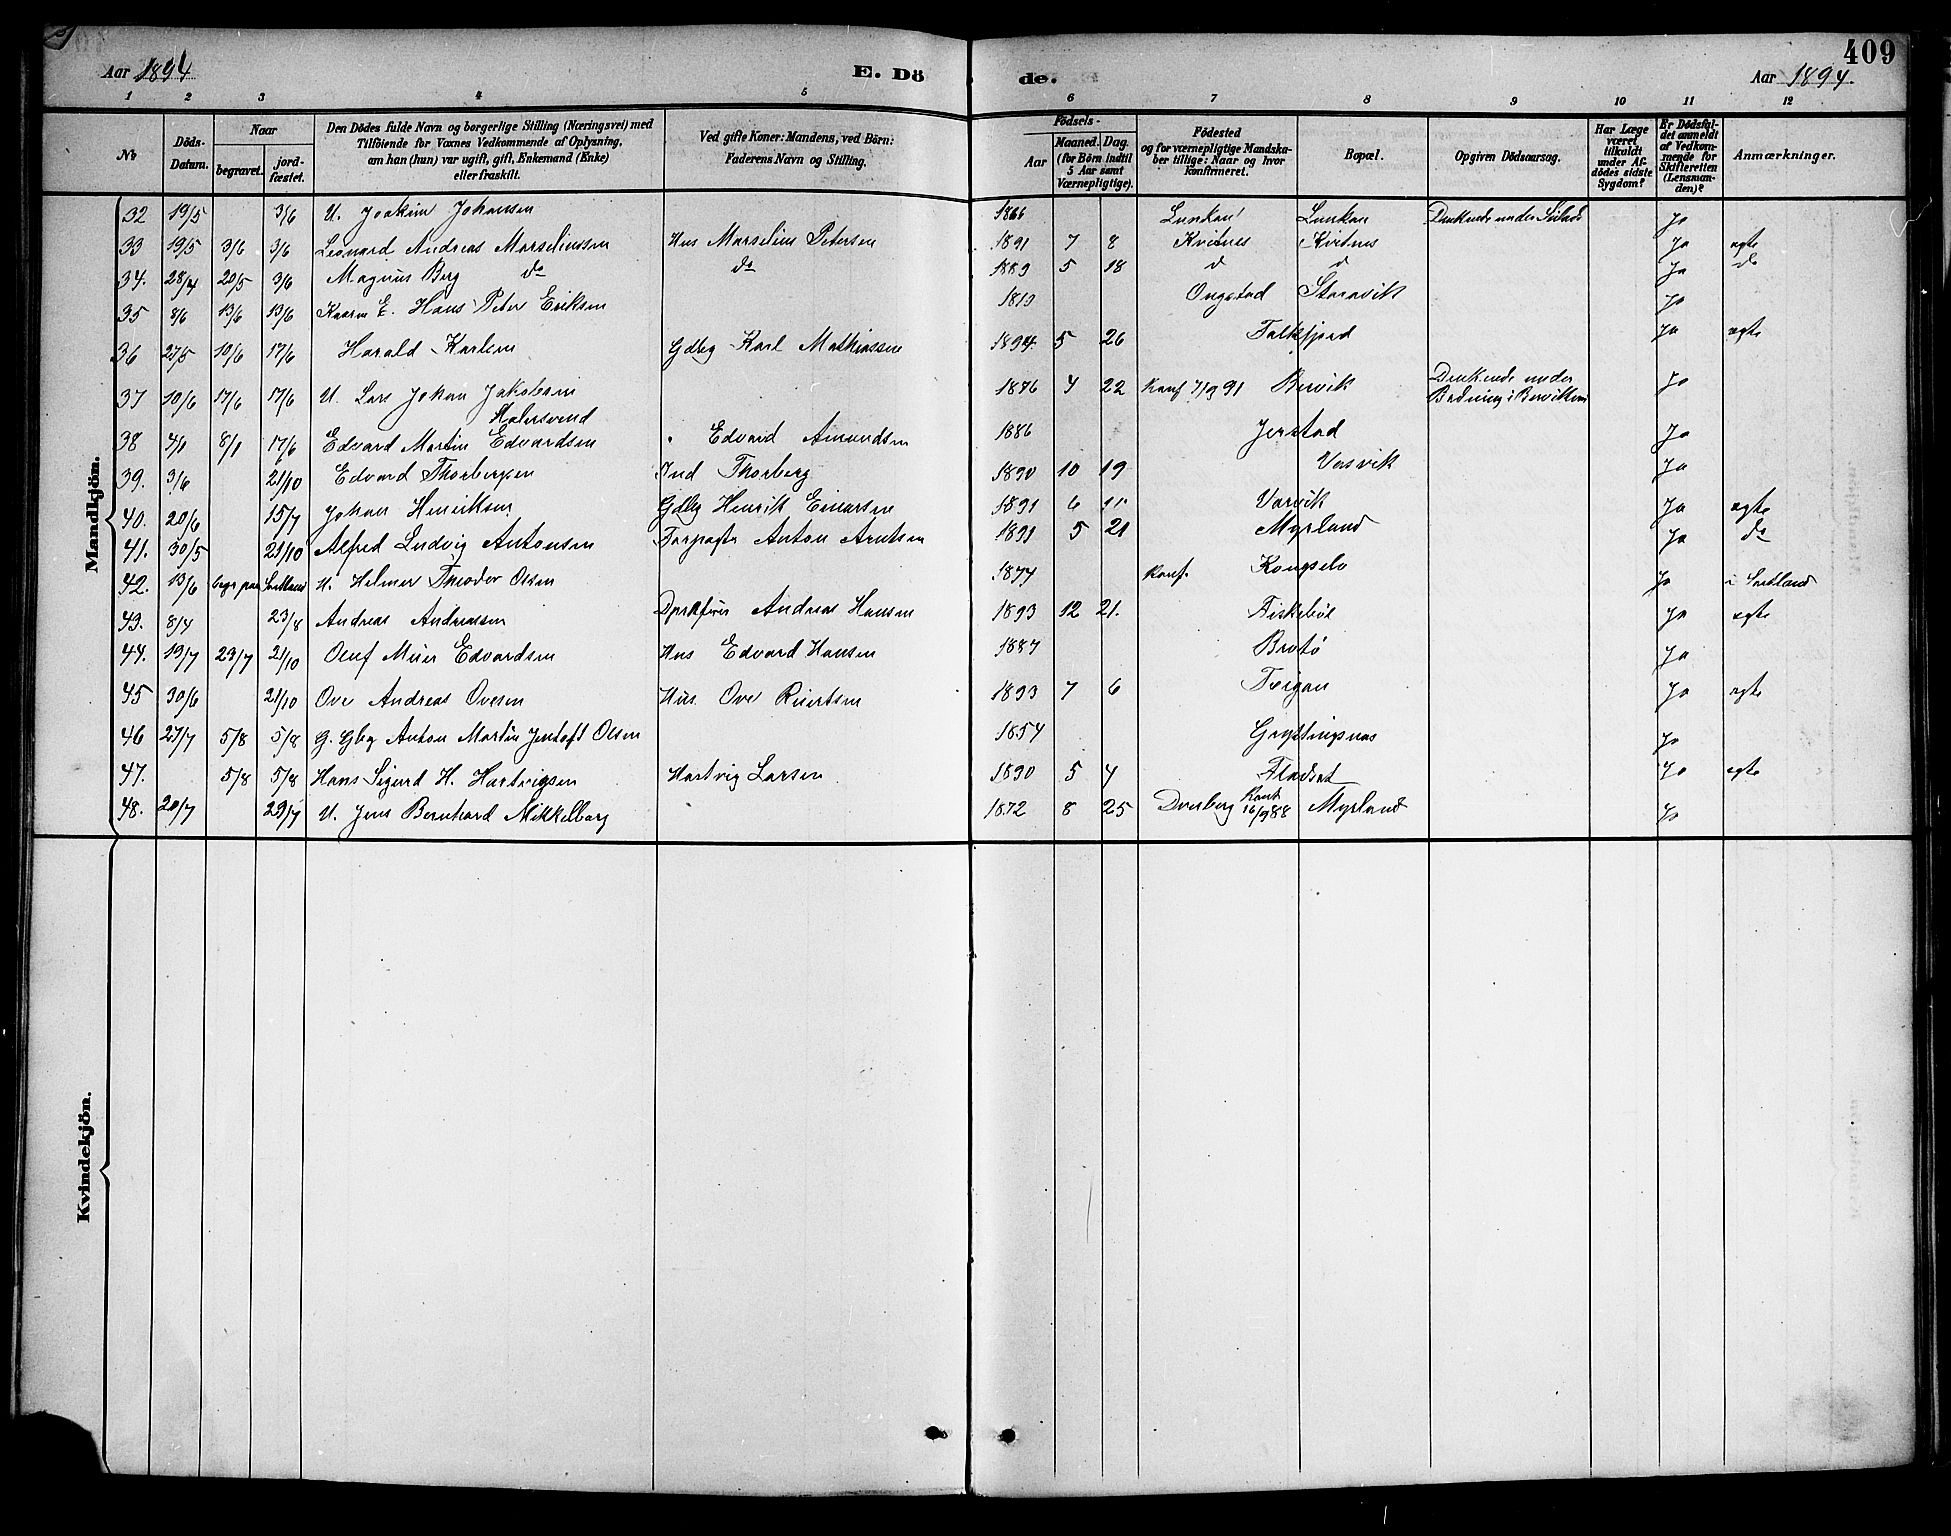 409
Aar 1894
E. Döde.
Aar 1894.
1 2 3 4 5 6 7 8 9 10 11 12
No
Döds-Datum.
Naar
begravet.
jord-fæstet.
Den Dödes fulde Navn og borgerlige Stilling (Næringsvei) med
Tilföiende for Voxnes Vedkommende af Oplysning,
om han (hun) var ugift, gift, Enkemand (Enke)
eller fraskilt.
Ved gifte Koner: Mandens, ved Börn:
Faderens Navn og Stilling.
Födsels-
Aar
Maaned. Dag.
(for Börn indtil
5 Aar samt
Værnepligtige).
Födested
og for værnepligtige Mandska-
ber tillige: Naar og hvor
konfirmeret.
Bopæl.
Opgiven Dödsaarsag.
Har Læge
været
tilkaldt
under Af-
dödes sidste
Sygdom?
Er Dödsfal-
det anmeldt
af Vedkom-
mende for
Skifteretten
(Lensman-
den)?
Anmærkninger.
Mandkjön.
32 19/5 3/6 U. Joakim Johansen 1866 Lunkan Lunkan Druknede under Ja
33 19/5 3/6 3/6 Leonard Andreas Marseliussen Hus Marselius Petersen 1891 7 8 Kvitnes Kvitnes Ja ægte
34. 28/4 20/5 3/6 Magnus Berg do do 1889 5 18 d d Ja do
35 8/6 13/6 13/6 Kaarm E. Hans Peter Eriksen 1819 Ongstad Storavik Ja
36 27/5 10/6 17/6 Harald Karlsen Gdbg Karl Mathiassen 1894. 5 26 Falkfjord Ja ægte
37 10/6 17/6 17/6 U. Lars Johan Jakobsen 1876 4 22 Konf 7/9 91 Bervik Druknede under Ja
Malersvend Badning i Berviken
38 4/1 8/1 17/6 Edvard Martin Edvardsen " Edvard Amundsen 1886 Jerstad Ja
39. 3/6 21/10 Edvard Thorbergsen Ind Thorberg 1890 10 19 Vasvik Ja
40. 20/6 15/7 Johan Henriksen Gdbg Henrik Einarsen 1891 6 11 Varvik Ja ægte
41. 30/5 21/10 Alfred Ludvig Antonsen Forpagter Anton Arntsen 1891 5 21 Myrland Ja do
42. 13/6 begr paa Sortland U. Helmer Theodor Olsen 1874 Konf. Ja i Sortland
43. 8/4 23/8 Andreas Andreassen Andreas Hansen 1893 12 21. Fiskeböl Ja ægte
44. 19/7 23/7 21/10 Oluf Meier Edvardsen Hus Edvard Hansen 1887 Brotö Ja
45 30/6 21/10 Ove Andreas Ovesen Hus. Ove Riertsen 1893 7 6 Ja ægte
46 27/7 5/8 5/8 G. Gbg Anton Martin Jentoft Olsen 1854 Gryttingsnæs Ja
47. 5/8 5/8 Hans Sigurd H. Hartvigsen Hartvig Larsen 1890 5 4 Fladsæt Ja ægte
48. 20/7 29/7 U. Jens Bernhard Mikkelborg 1872 8 25 Dverberg Konf. 16/9 88 Myrland Ja
Kvindekjön.